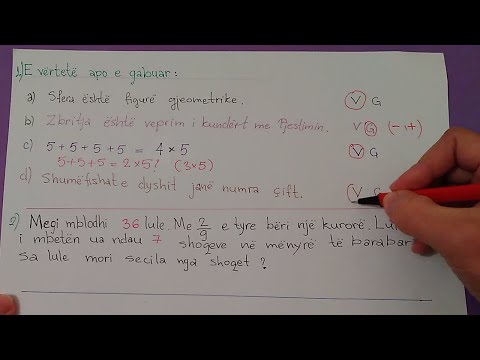 1) E vërtetë apo e gabuar:
a) Sfera është figurë gjeometrike. V G
b) Zbritja është veprim i kundërt me Pjestimin. V G (- i +)
c) 5 + 5 + 5 + 5 = 4 × 5 V G
5 + 5 + 5 = 2 × 5? (3×5)
d) Shumëfishat e dyshit janë numra çift. V G
2) Megi mblodhi 36 lule. Me 2/9 e tyre bëri një kurorë.
i mbetën ua ndau 7 shoqeve në mënyrë të
sa lule mori secila nga shoqet?